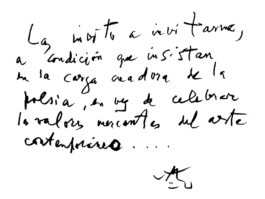 Los invito a invitarme,
a condición que insistan
en la carga creadora de la
poesía, en vez de celebrar
los valores mercantes del arte
contemporáneo....